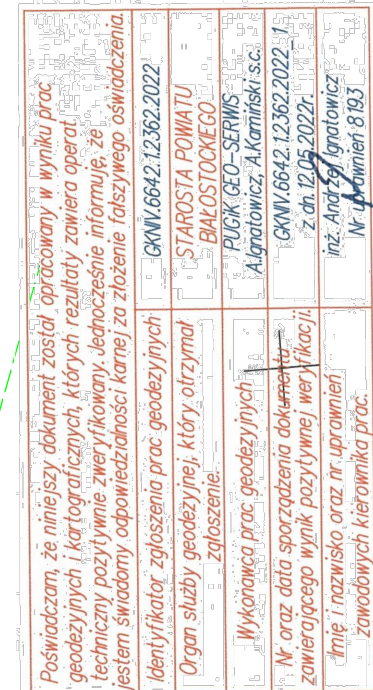 Poświadczam, że niniejszy dokument został opracowany w wyniku prac
geodezyjnych i kartograficznych, których rezultaty zawiera operat
techniczny pozytywnie zweryfikowany. Jednocześnie informuję, że
jestem świadomy odpowiedzialności karnej za złożenie fałszywego oświadczenia.
Identyfikator zgłoszenia prac geodezyjnych
GKNV.6642.1.2362.2022
Organ służby geodezyjnej, który otrzymał
zgłoszenie.
STAROSTA POWIATU
BIAŁOSTOCKIEGO
Wykonawca prac geodezyjnych
PUGiK GEO-SERWIS
A.Ignatowicz, A.Kamiński s.c.
Nr oraz data sporządzenia dokumentu
zawierającego wynik pozytywnej weryfikacji.
GKNV.6642.1.2362.2022_1
z dn. 12.05.2022r.
Imię i nazwisko oraz nr uprawnień
zawodowych kierownika prac.
inż. Andrzej Ignatowicz
Nr uprawnień 8193